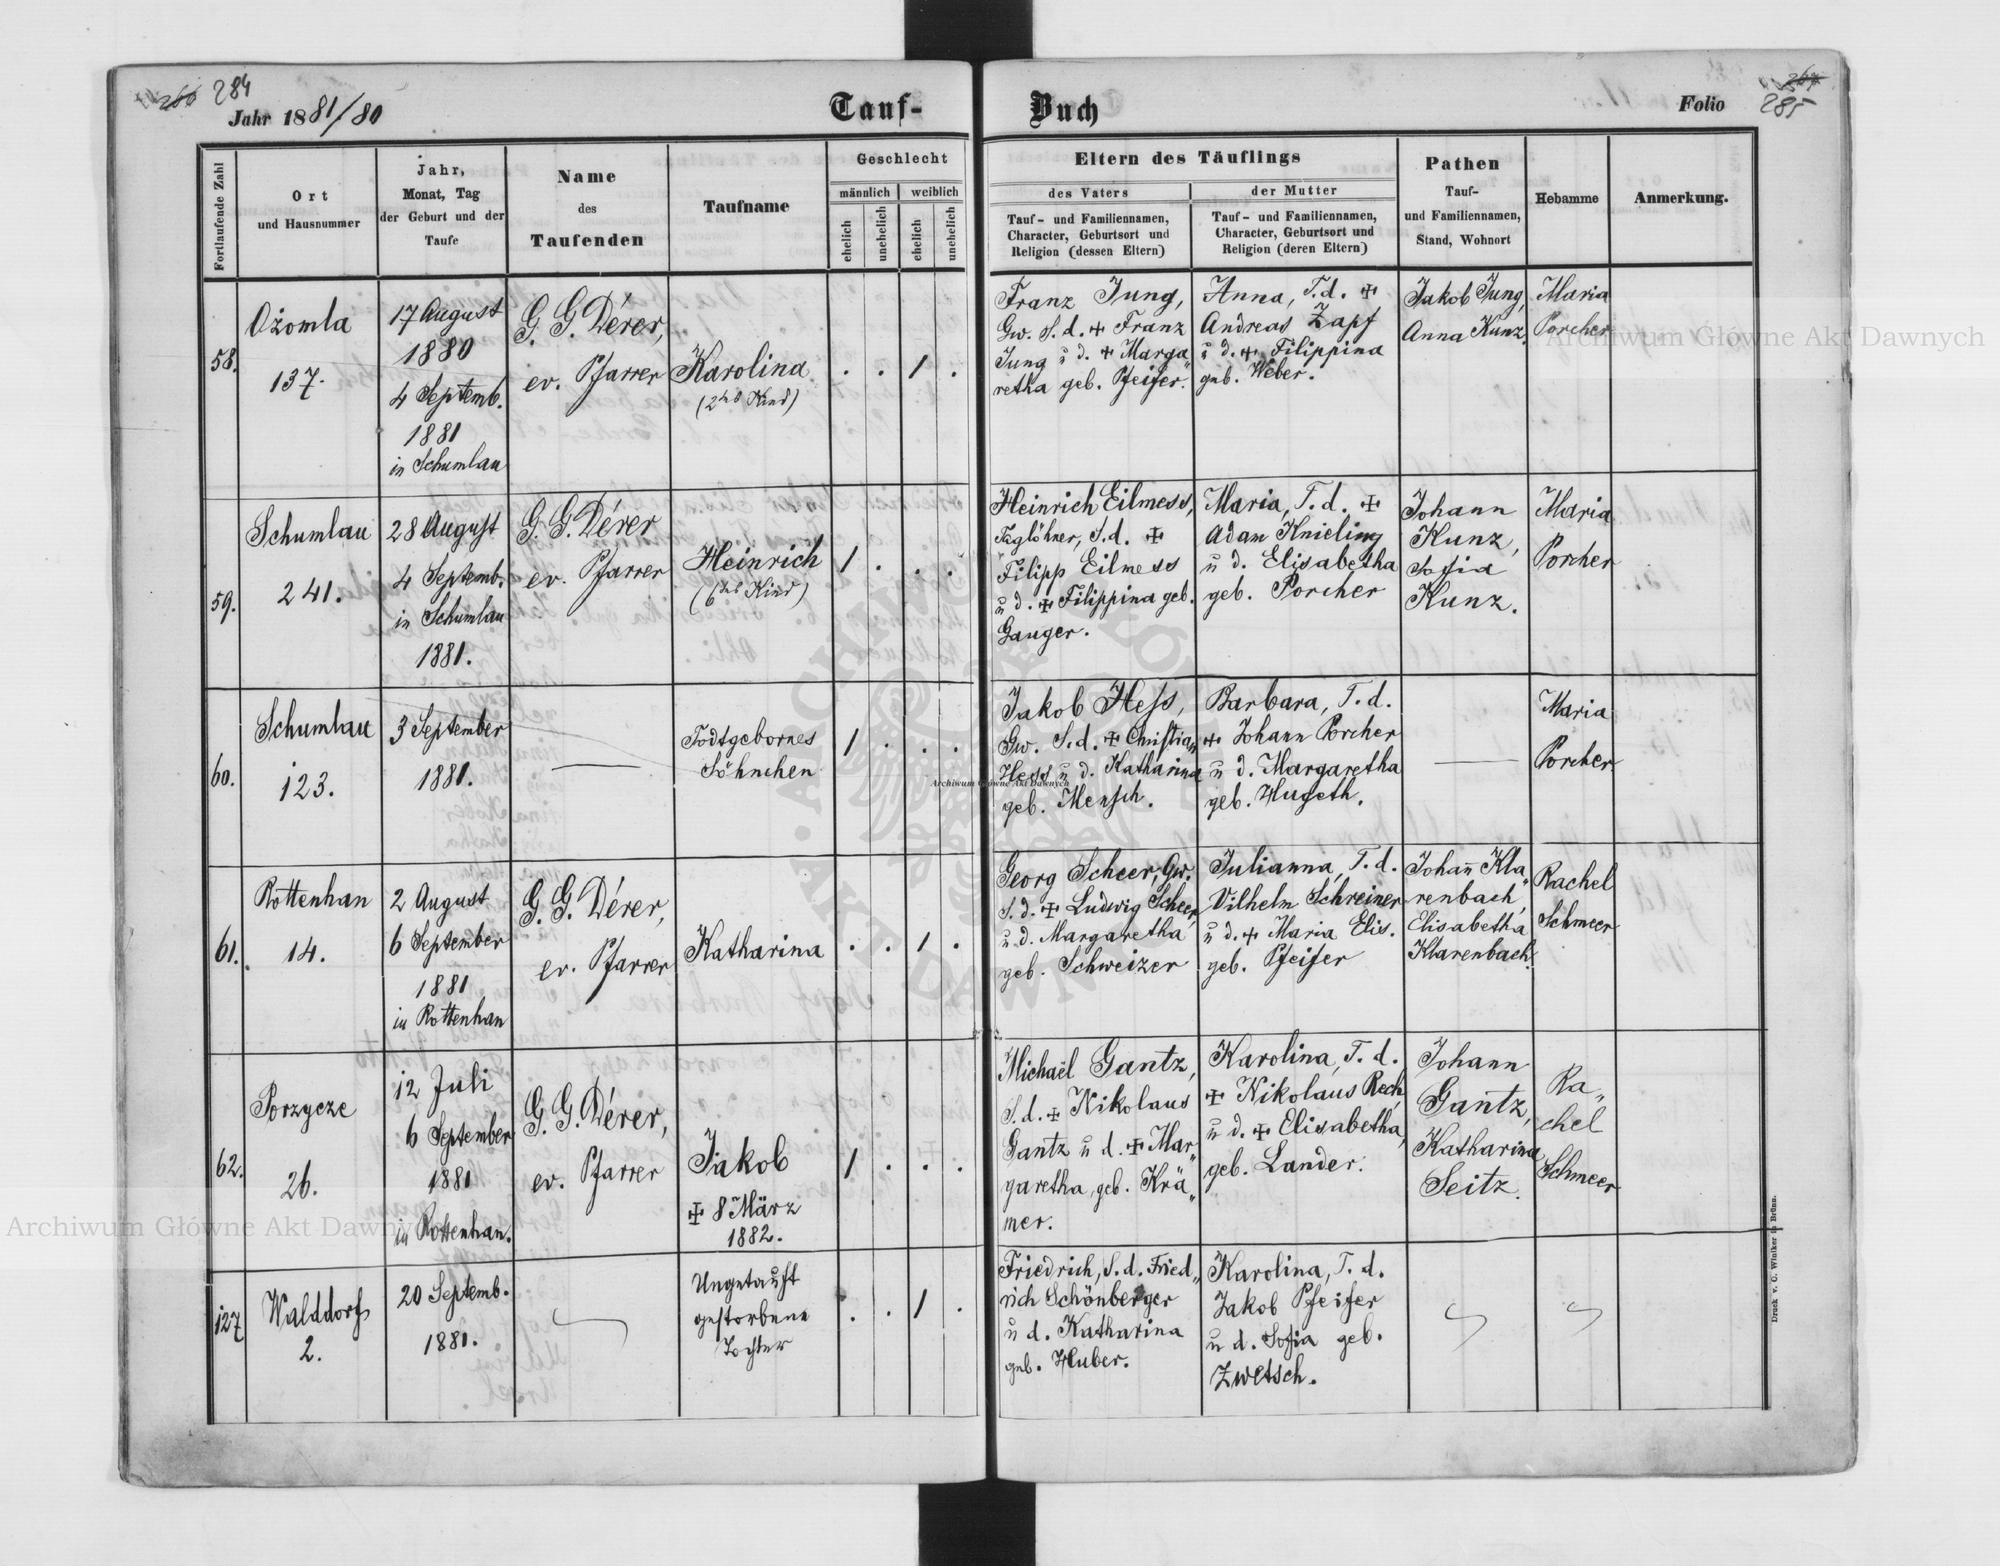 266 284
Jahr 1881/80
Tauf-
Buch
Folio
267
285
Fortlaufende Zahl
Ort
und Hausnummer
Jahr,
Monat, Tag
der Geburt und der
Taufe
Name
des
Taufenden
Taufname
Geschlecht
männlich
weiblich
ehelich
unehelich
ehelich
unehelich
Eltern des Täuflings
des Vaters
Tauf- und Familiennamen,
Character, Geburtsort und
Religion (dessen Eltern)
der Mutter
Tauf- und Familiennamen,
Character, Geburtsort und
Religion (deren Eltern)
Pathen
Tauf-
und Familiennamen,
Stand, Wohnort
Hebamme
Anmerkung.
58.
Ożomla
137.
17 August
1880
4 Septemb.
1881
in Schumlau
G. G. Dérer,
ev. Pfarrer
Karolina
(2tes Kind)
. . 1 .
Franz Jung,
Gw. S. d. + Franz
Jung u d. + Marga„
retha geb. Pfeifer.
Anna, T. d. +
Andreas Zapf
u d. + Filippina
geb. Weber.
Jakob Jung,
Anna Kunz.
Maria
Porcher
59.
Schumlau
241.
28 August
4 Septemb.
in Schumlau
1881.
G. G. Dérer
ev. Pfarrer
Heinrich
(6tes Kind)
1 . . .
Heinrich Eilmess,
Taglöhner, S. d. +
Filipp Eilmess
u d. + Filippina geb.
Gauger.
Maria, T. d. +
Adam Knieling
u d. Elisabetha
geb. Porcher
Johann
Kunz,
Sofia
Kunz.
Maria
Porcher
60.
Schumlau
123.
3 September
1881.
Todtgebornes
Söhnchen
1 . . .
Jakob Hess,
Gw. S. d. + Christian
Hess u d. Katharina
geb. Mensch.
Barbara, T. d.
+ Johann Porcher
u d. Margaretha
geb. Hugeth.
Maria
Porcher.
61.
Rottenhan
14.
2 August
6 September
1881
in Rottenhan
G. G. Dérer,
ev. Pfarrer
Katharina
. . 1 .
Georg Scheer, Gw.
S. d. + Ludwig Scheer,
u d. Margaretha
geb. Schweizer
Julianna, T. d.
Vilhelm Schreiner
u d. + Maria Elis.
geb. Pfeifer
Johan̄ Kla„
renbach,
Elisabetha
Klarenbach.
Rachel
Schmeer
62.
Porzycze
26.
12 Juli
6 September
1881
in Rottenhan.
G. G. Dérer,
ev. Pfarrer
Jakob
+ 8 März
1882.
1 . . .
Michaël Gantz,
S. d. + Nikolaus
Gantz u d. + Mar„
garetha, geb. Krä„
mer.
Karolina, T. d.
+ Nikolaus Rech,
u d. + Elisabetha,
geb. Lander.
Johann
Gantz,
Katharina
Seitz.
Ra„
chel
Schmeer
127
Walddorf
2.
20 Septemb.
1881.
Ungetauft
gestorbene
Tochter
. . 1 .
Friedrich, S. d. Fried„
rich Schönberger
u d. Katharina
geb. Huber.
Karolina, T. d.
Jakob Pfeifer
u d. Sofia geb.
Zwetsch.
Druck v. C. Winiker in Brünn.
Archiwum Główne Akt Dawnych
Archiwum Główne Akt Dawnych
Archiwum Główne Akt Dawnych